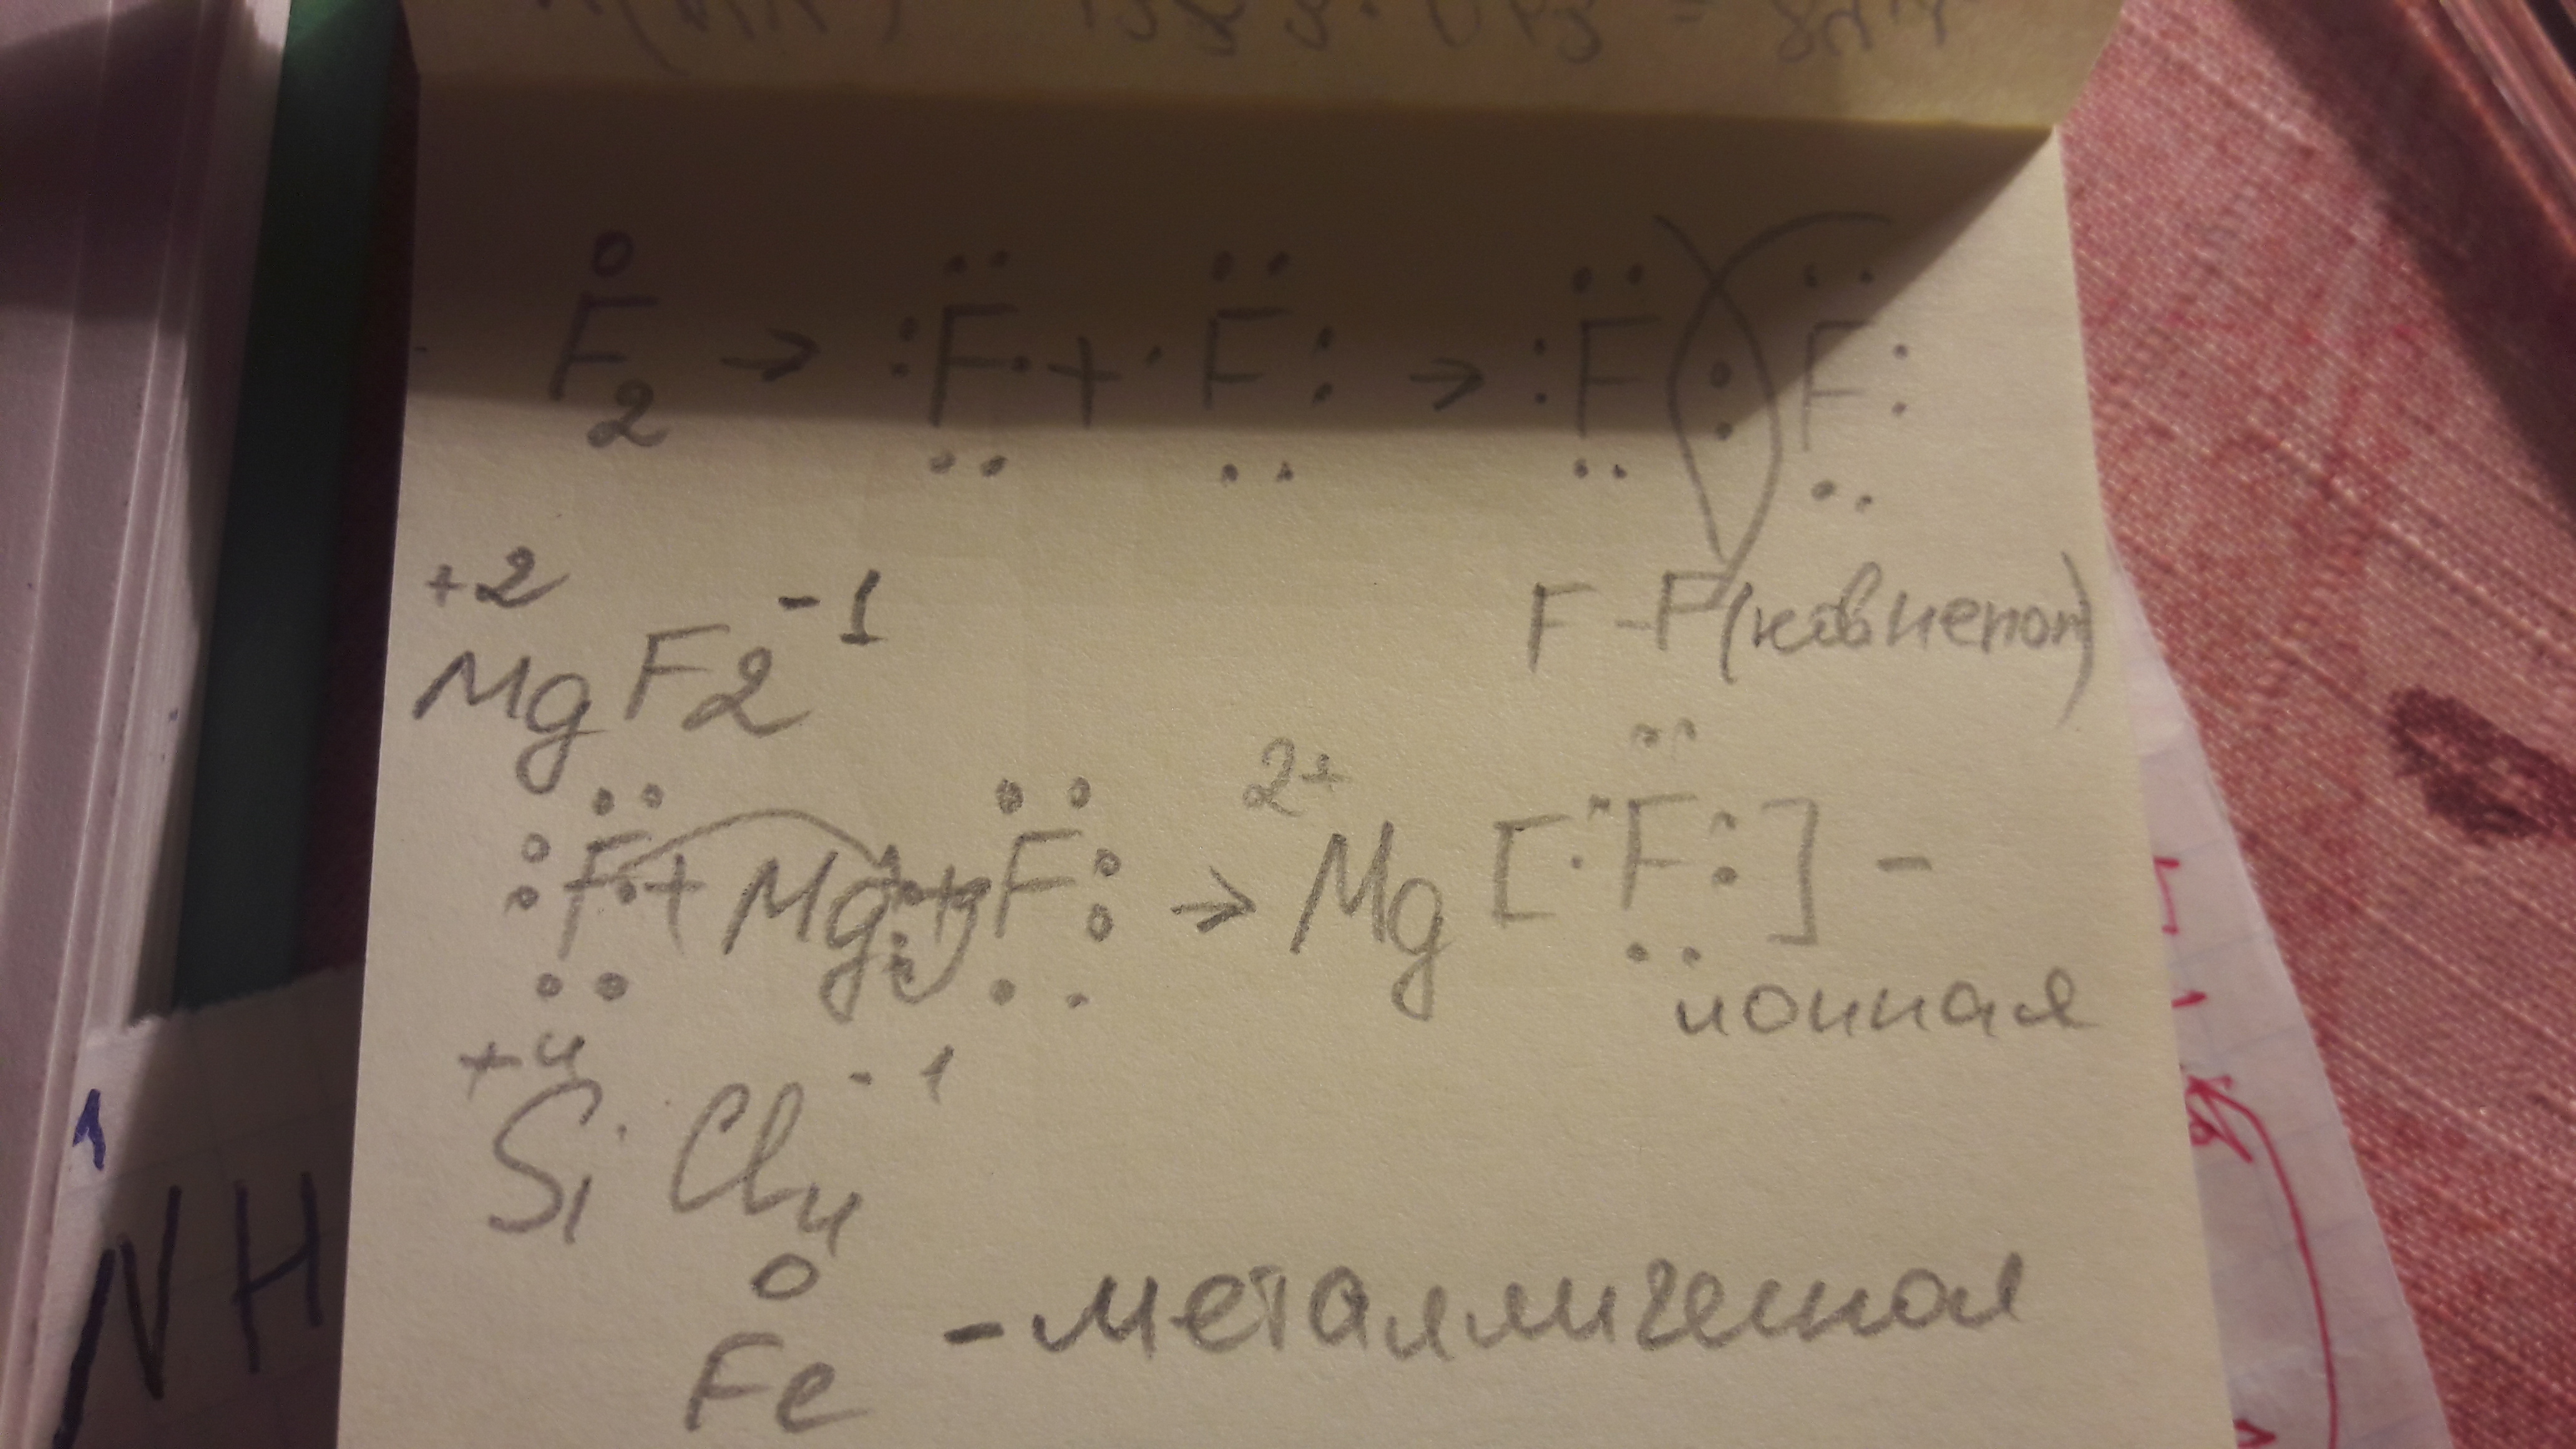 0
F2 → :F· + ·F: → :F:F:
F-F (ков непол)
+2 -1
MgF2
2+
:F· + Mg: + ·F: → Mg [:F:] -
ионная
+4 -1
SiCl4
0
Fe - металлическая
1
NH